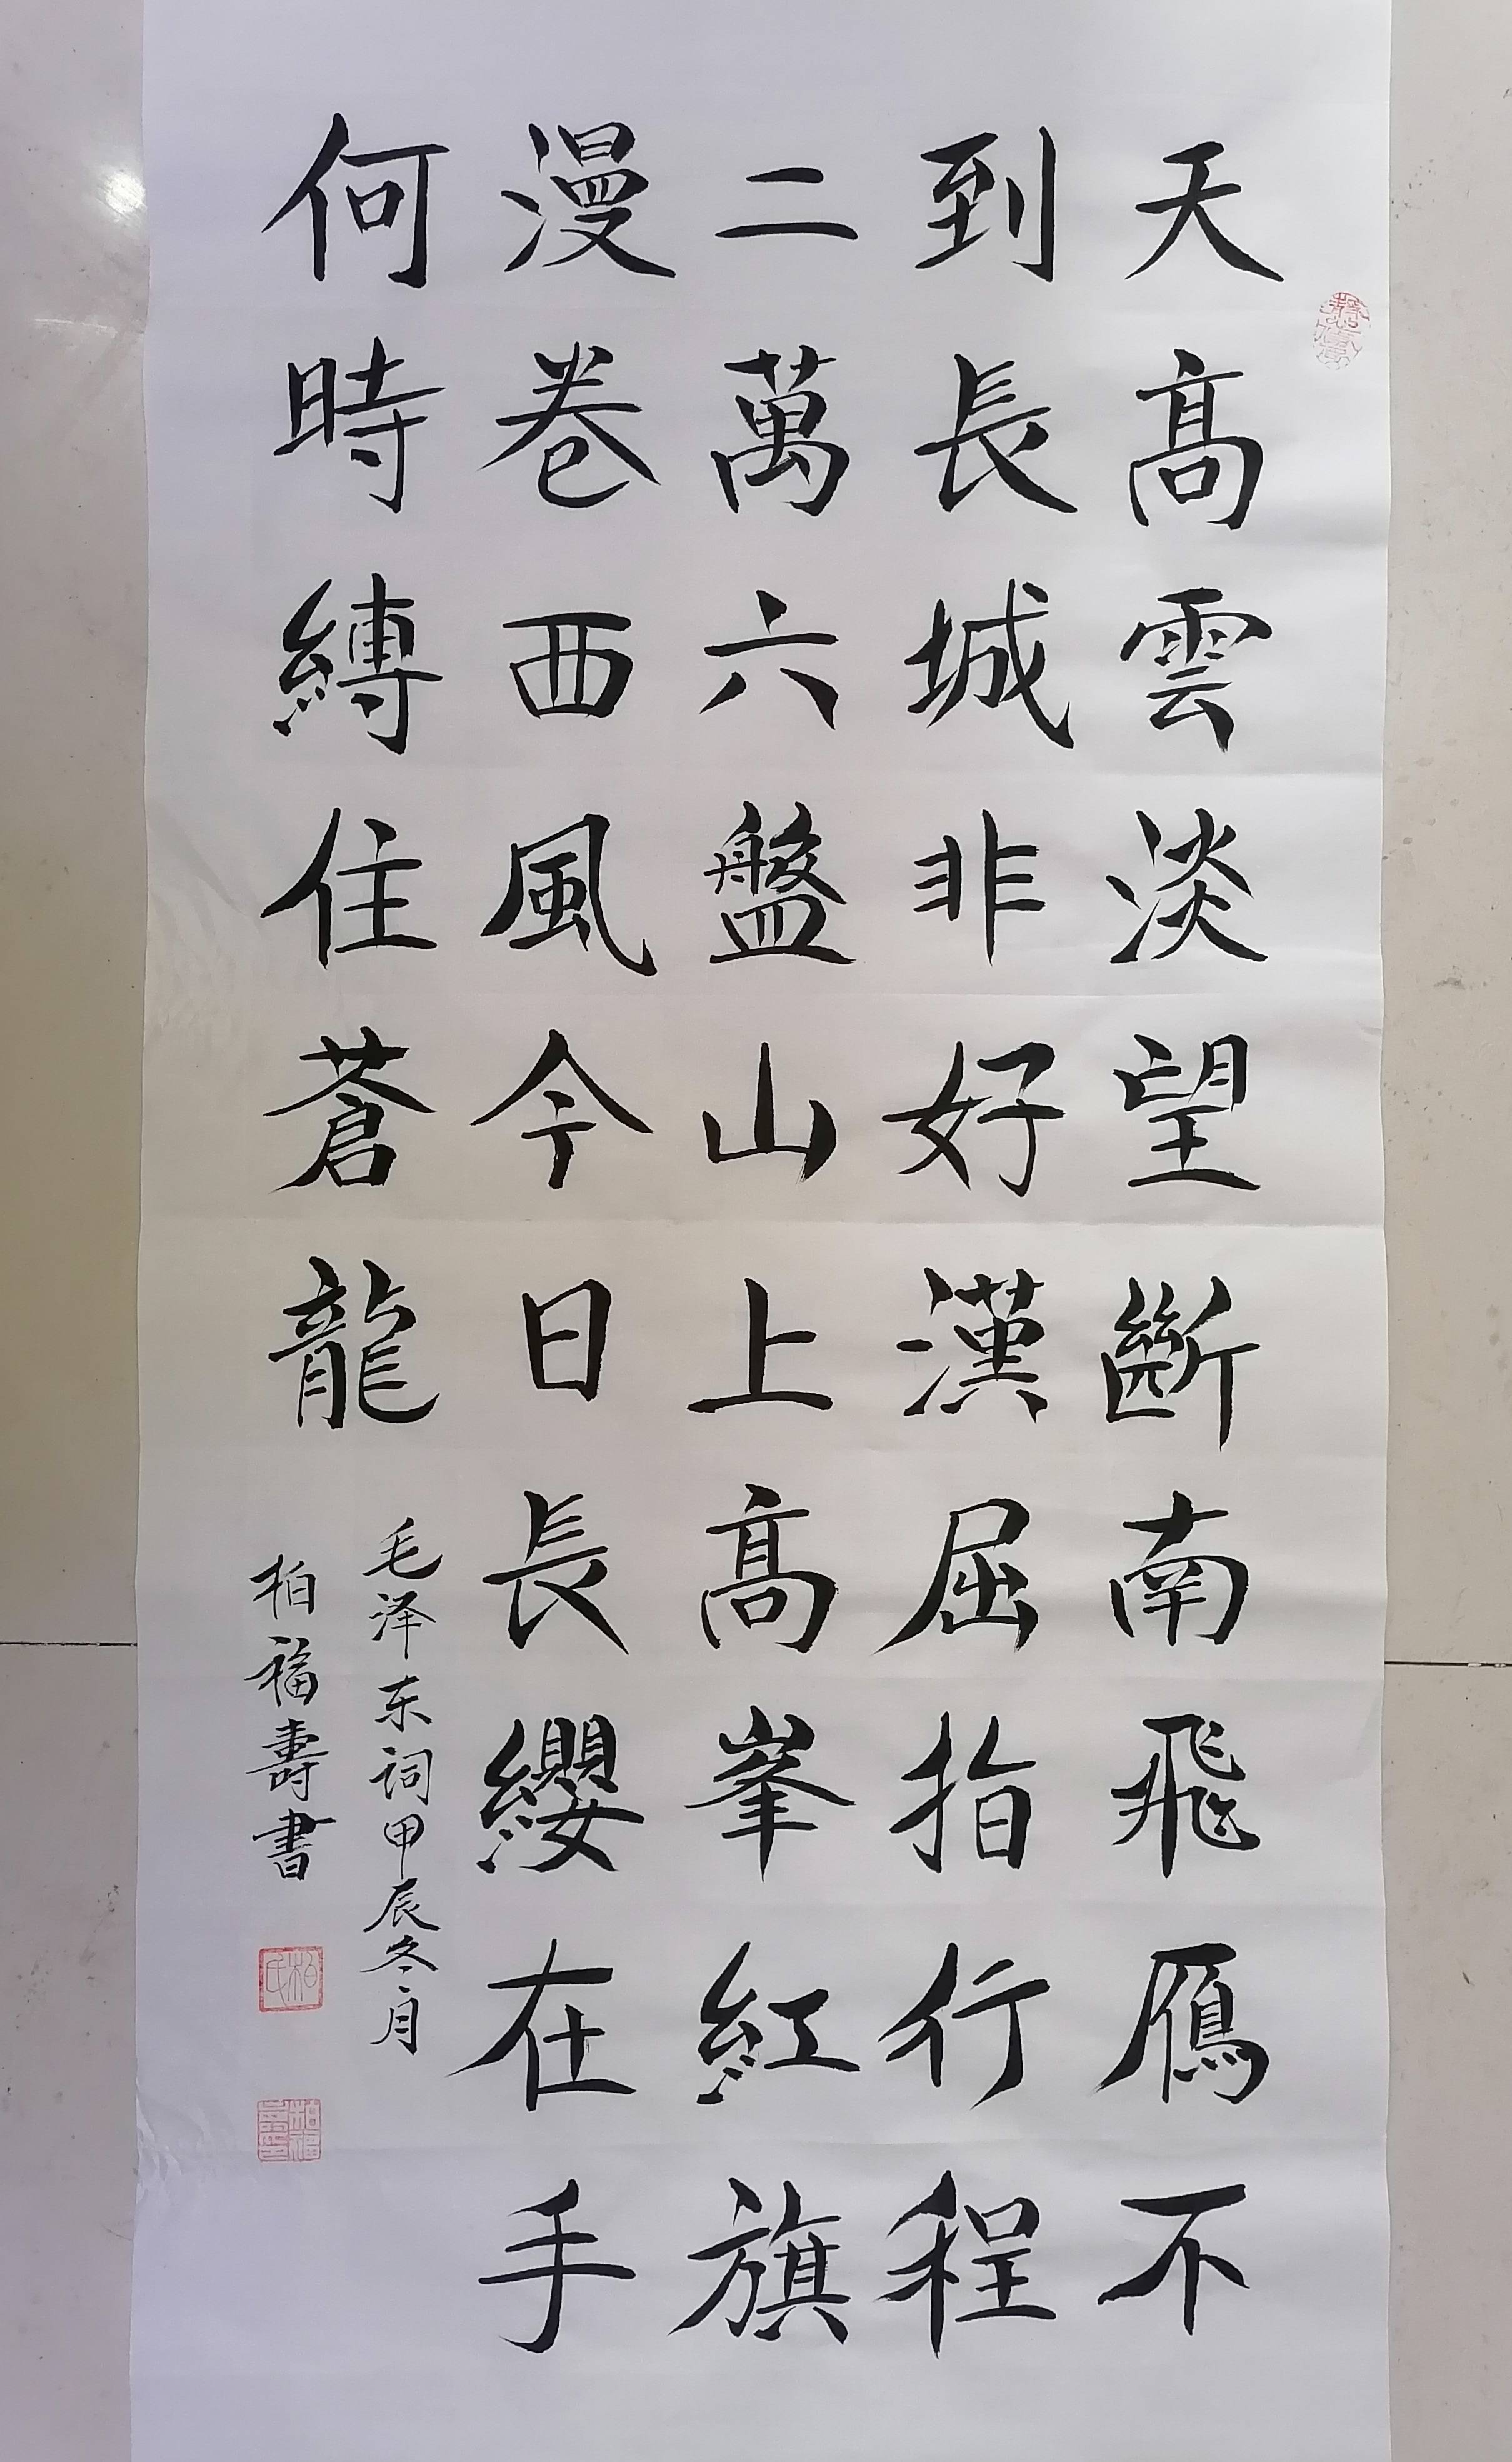 天高雲淡望斷南飛鴈不
到長城非好漢屈指行程
二萬六盤山上高峯紅旗
漫卷西風今日長纓在手
何時縛住蒼龍
毛泽东词甲辰冬月
柏福壽書
柏氏